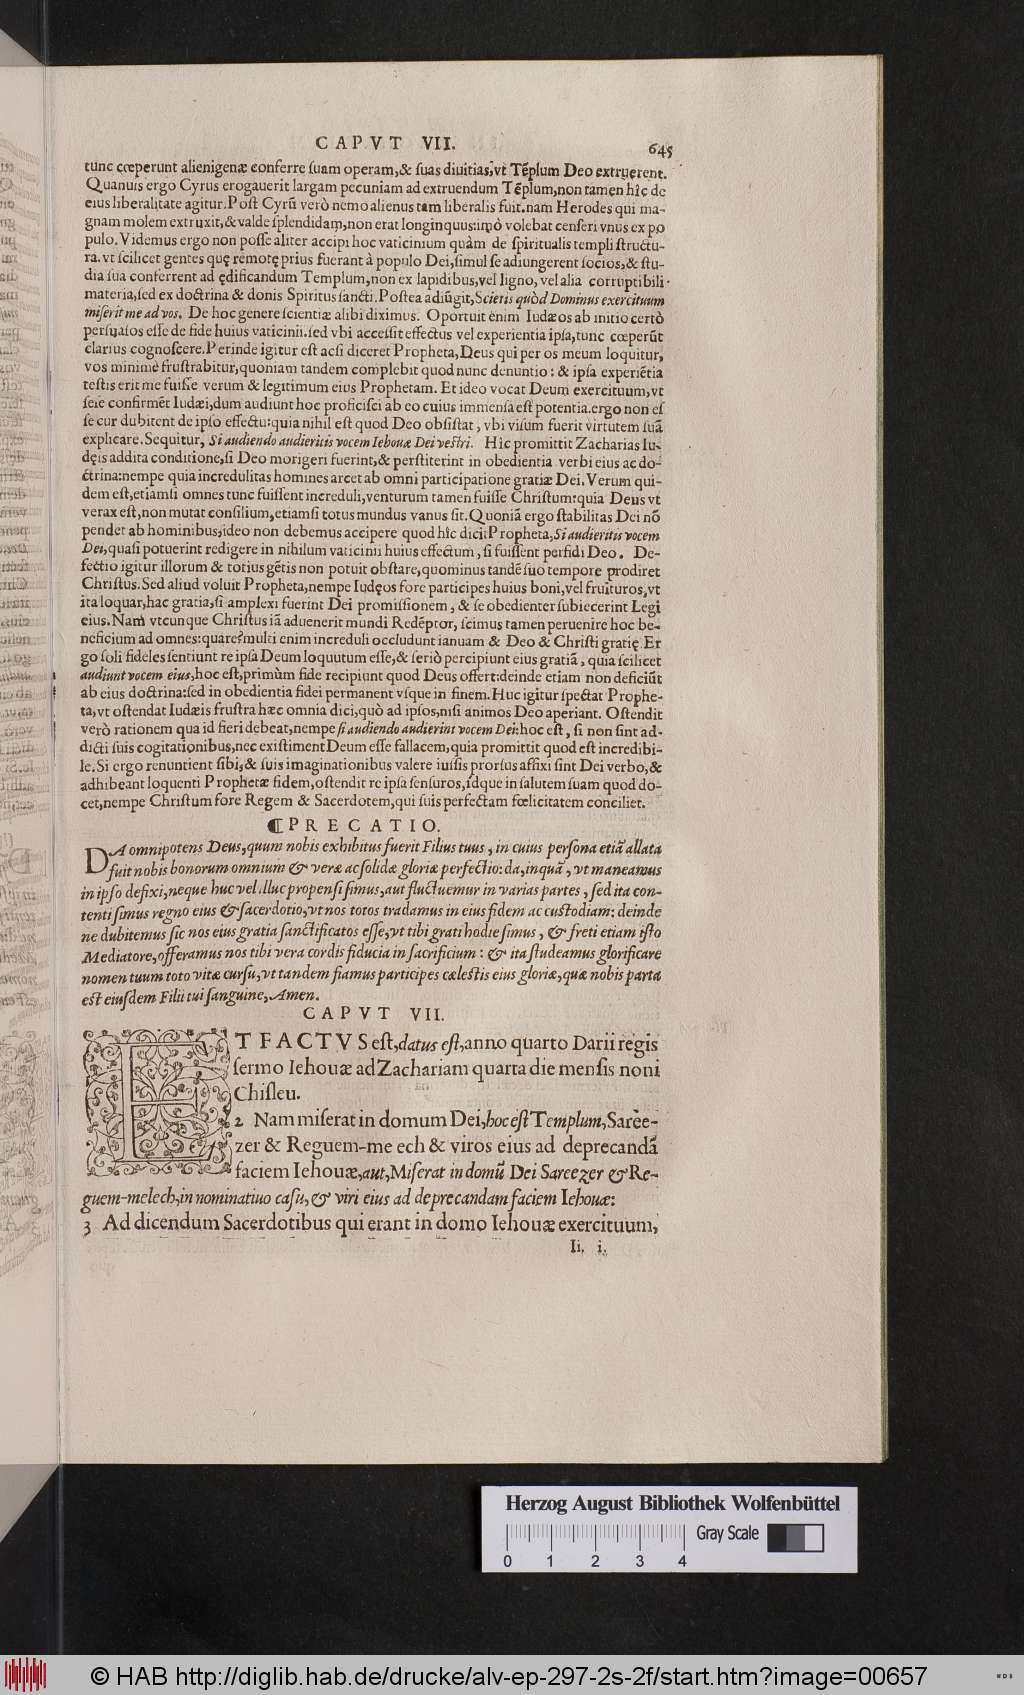 CAPVT VII. 645
tunc cœperunt alienigenæ conferre ſuam operam,& ſuas diuitias,vt Tēplum Deo extruerent.
Quanuis ergo Cyrus erogauerit largam pecuniam ad extruendum Tēplum,non tamen hîc de
eius liberalitate agitur.Poſt Cyrū verò nemo alienus tam liberalis fuit.nam Herodes qui ma-
gnam molem extruxit,& valde ſplendidam,non erat longinquus:imò volebat cenſeri vnus ex po
pulo.Videmus ergo non poſſe aliter accipi hoc vaticinium quàm de ſpiritualis templi ſtructu-
ra.vt ſcilicet gentes quę remotę prius fuerant à populo Dei,ſimul ſe adiungerent ſocios,& ſtu-
dia ſua conferrent ad ędificandum Templum,non ex lapidibus,vel ligno,vel alia corruptibili
materia,ſed ex doctrina & donis Spiritus ſancti.Poſtea adiūgit,Scietis quòd Dominus exercituum
miſerit me ad vos. De hoc genere ſcientiæ alibi diximus. Oportuit enim Iudæos ab initio certò
perſuaſos eſſe de fide huius vaticinii.ſed vbi acceſſit effectus vel experientia ipſa,tunc cœperūt
clarius cognoſcere.Perinde igitur eſt acſi diceret Propheta,Deus qui per os meum loquitur,
vos minimè fruſtrabitur,quoniam tandem complebit quod nunc denuntio: & ipſa experiētia
teſtis erit me fuiſſe verum & legitimum eius Prophetam. Et ideo vocat Deum exercituum,vt
ſeſe confirmēt Iudæi,dum audiunt hoc proficiſci ab eo cuius immenſa eſt potentia.ergo non eſ
ſe cur dubitent de ipſo effectu:quia nihil eſt quod Deo obſiſtat, vbi viſum fuerit virtutem ſuā
explicare.Sequitur, Si audiendo audieritis vocem Iehouæ Dei veſtri. Hîc promittit Zacharias Iu-
dęis addita conditione,ſi Deo morigeri fuerint,& perſtiterint in obedientia verbi eius ac do-
ctrina:nempe quia incredulitas homines arcet ab omni participatione gratiæ Dei.Verum qui-
dem eſt,etiamſi omnes tunc fuiſſent increduli,venturum tamen fuiſſe Chriſtum:quia Deus vt
verax eſt,non mutat conſilium,etiamſi totus mundus vanus ſit.Quoniā ergo ſtabilitas Dei nō
pendet ab hominibus,ideo non debemus accipere quod hîc dicit Propheta,Si audieritis vocem
Dei,quaſi potuerint redigere in nihilum vaticinii huius effectum, ſi fuiſſent perfidi Deo. De-
fectio igitur illorum & totius gētis non potuit obſtare,quominus tandē ſuo tempore prodiret
Chriſtus.Sed aliud voluit Propheta,nempe Iudęos fore participes huius boni,vel fruituros,vt
ita loquar,hac gratia,ſi amplexi fuerint Dei promiſſionem, & ſe obedienter ſubiecerint Legi
eius.Nam vtcunque Chriſtus iā aduenerit mundi Redēptor, ſcimus tamen peruenire hoc be-
neficium ad omnes:quare?multi enim increduli occludunt ianuam & Deo & Chriſti gratię. Er
go ſoli fideles ſentiunt re ipſa Deum loquutum eſſe,& ſeriò percipiunt eius gratiā, quia ſcilicet
audiunt vocem eius,hoc eſt,primùm fide recipiunt quod Deus offert:deinde etiam non deficiūt
ab eius doctrina:ſed in obedientia fidei permanent vſque in finem.Huc igitur ſpectat Prophe-
ta,vt oſtendat Iudæis fruſtra hæc omnia dici,quò ad ipſos,niſi animos Deo aperiant. Oſtendit
verò rationem qua id fieri debeat,nempe ſi audiendo audierint vocem Dei:hoc eſt, ſi non ſint ad-
dicti ſuis cogitationibus,nec exiſtiment Deum eſſe fallacem,quia promittit quod eſt incredibi-
le.Si ergo renuntient ſibi,& ſuis imaginationibus valere iuſſis prorſus affixi ſint Dei verbo,&
adhibeant loquenti Prophetæ fidem,oſtendit re ipſa ſenſuros,idque in ſalutem ſuam quod do-
cet,nempe Chriſtum fore Regem & Sacerdotem,qui ſuis perfectam fœlicitatem conciliet.
¶PRECATIO.
DA omnipotens Deus,quum nobis exhibitus fuerit Filius tuus, in cuius perſona etiā allata
fuit nobis bonorum omnium & veræ ac ſolidæ gloriæ perfectio:da,inquā, vt maneamus
in ipſo defixi,neque huc vel illuc propenſi ſimus,aut fluctuemur in varias partes, ſed ita con-
tenti ſimus regno eius & ſacerdotio,vt nos totos tradamus in eius fidem ac cuſtodiam: deinde
ne dubitemus ſic nos eius gratia ſanctificatos eſſe,vt tibi grati hodie ſimus, & freti etiam iſto
Mediatore,offeramus nos tibi vera cordis fiducia in ſacrificium: & ita ſtudeamus glorificare
nomen tuum toto vitæ curſu,vt tandem fiamus participes cæleſtis eius gloriæ,quæ nobis parta
eſt eiuſdem Filii tui ſanguine,Amen.
CAPVT VII.
ET FACTVS eſt,datus eſt,anno quarto Darii regis
ſermo Iehouæ ad Zachariam quarta die menſis noni
Chiſleu.
2 Nam miſerat in domum Dei,hoc eſt Templum,Saree-
zer & Reguem-me ech & viros eius ad deprecandā
faciem Iehouæ,aut,Miſerat in domū Dei Sareezer & Re-
guem-melech,in nominatiuo caſu,& viri eius ad deprecandam faciem Iehouæ:
3 Ad dicendum Sacerdotibus qui erant in domo Iehouæ exercituum,
Ii. i.
Herzog August Bibliothek Wolfenbüttel
Gray Scale
0 1 2 3 4
© HAB http://diglib.hab.de/drucke/alv-ep-297-2s-2f/start.htm?image=00657